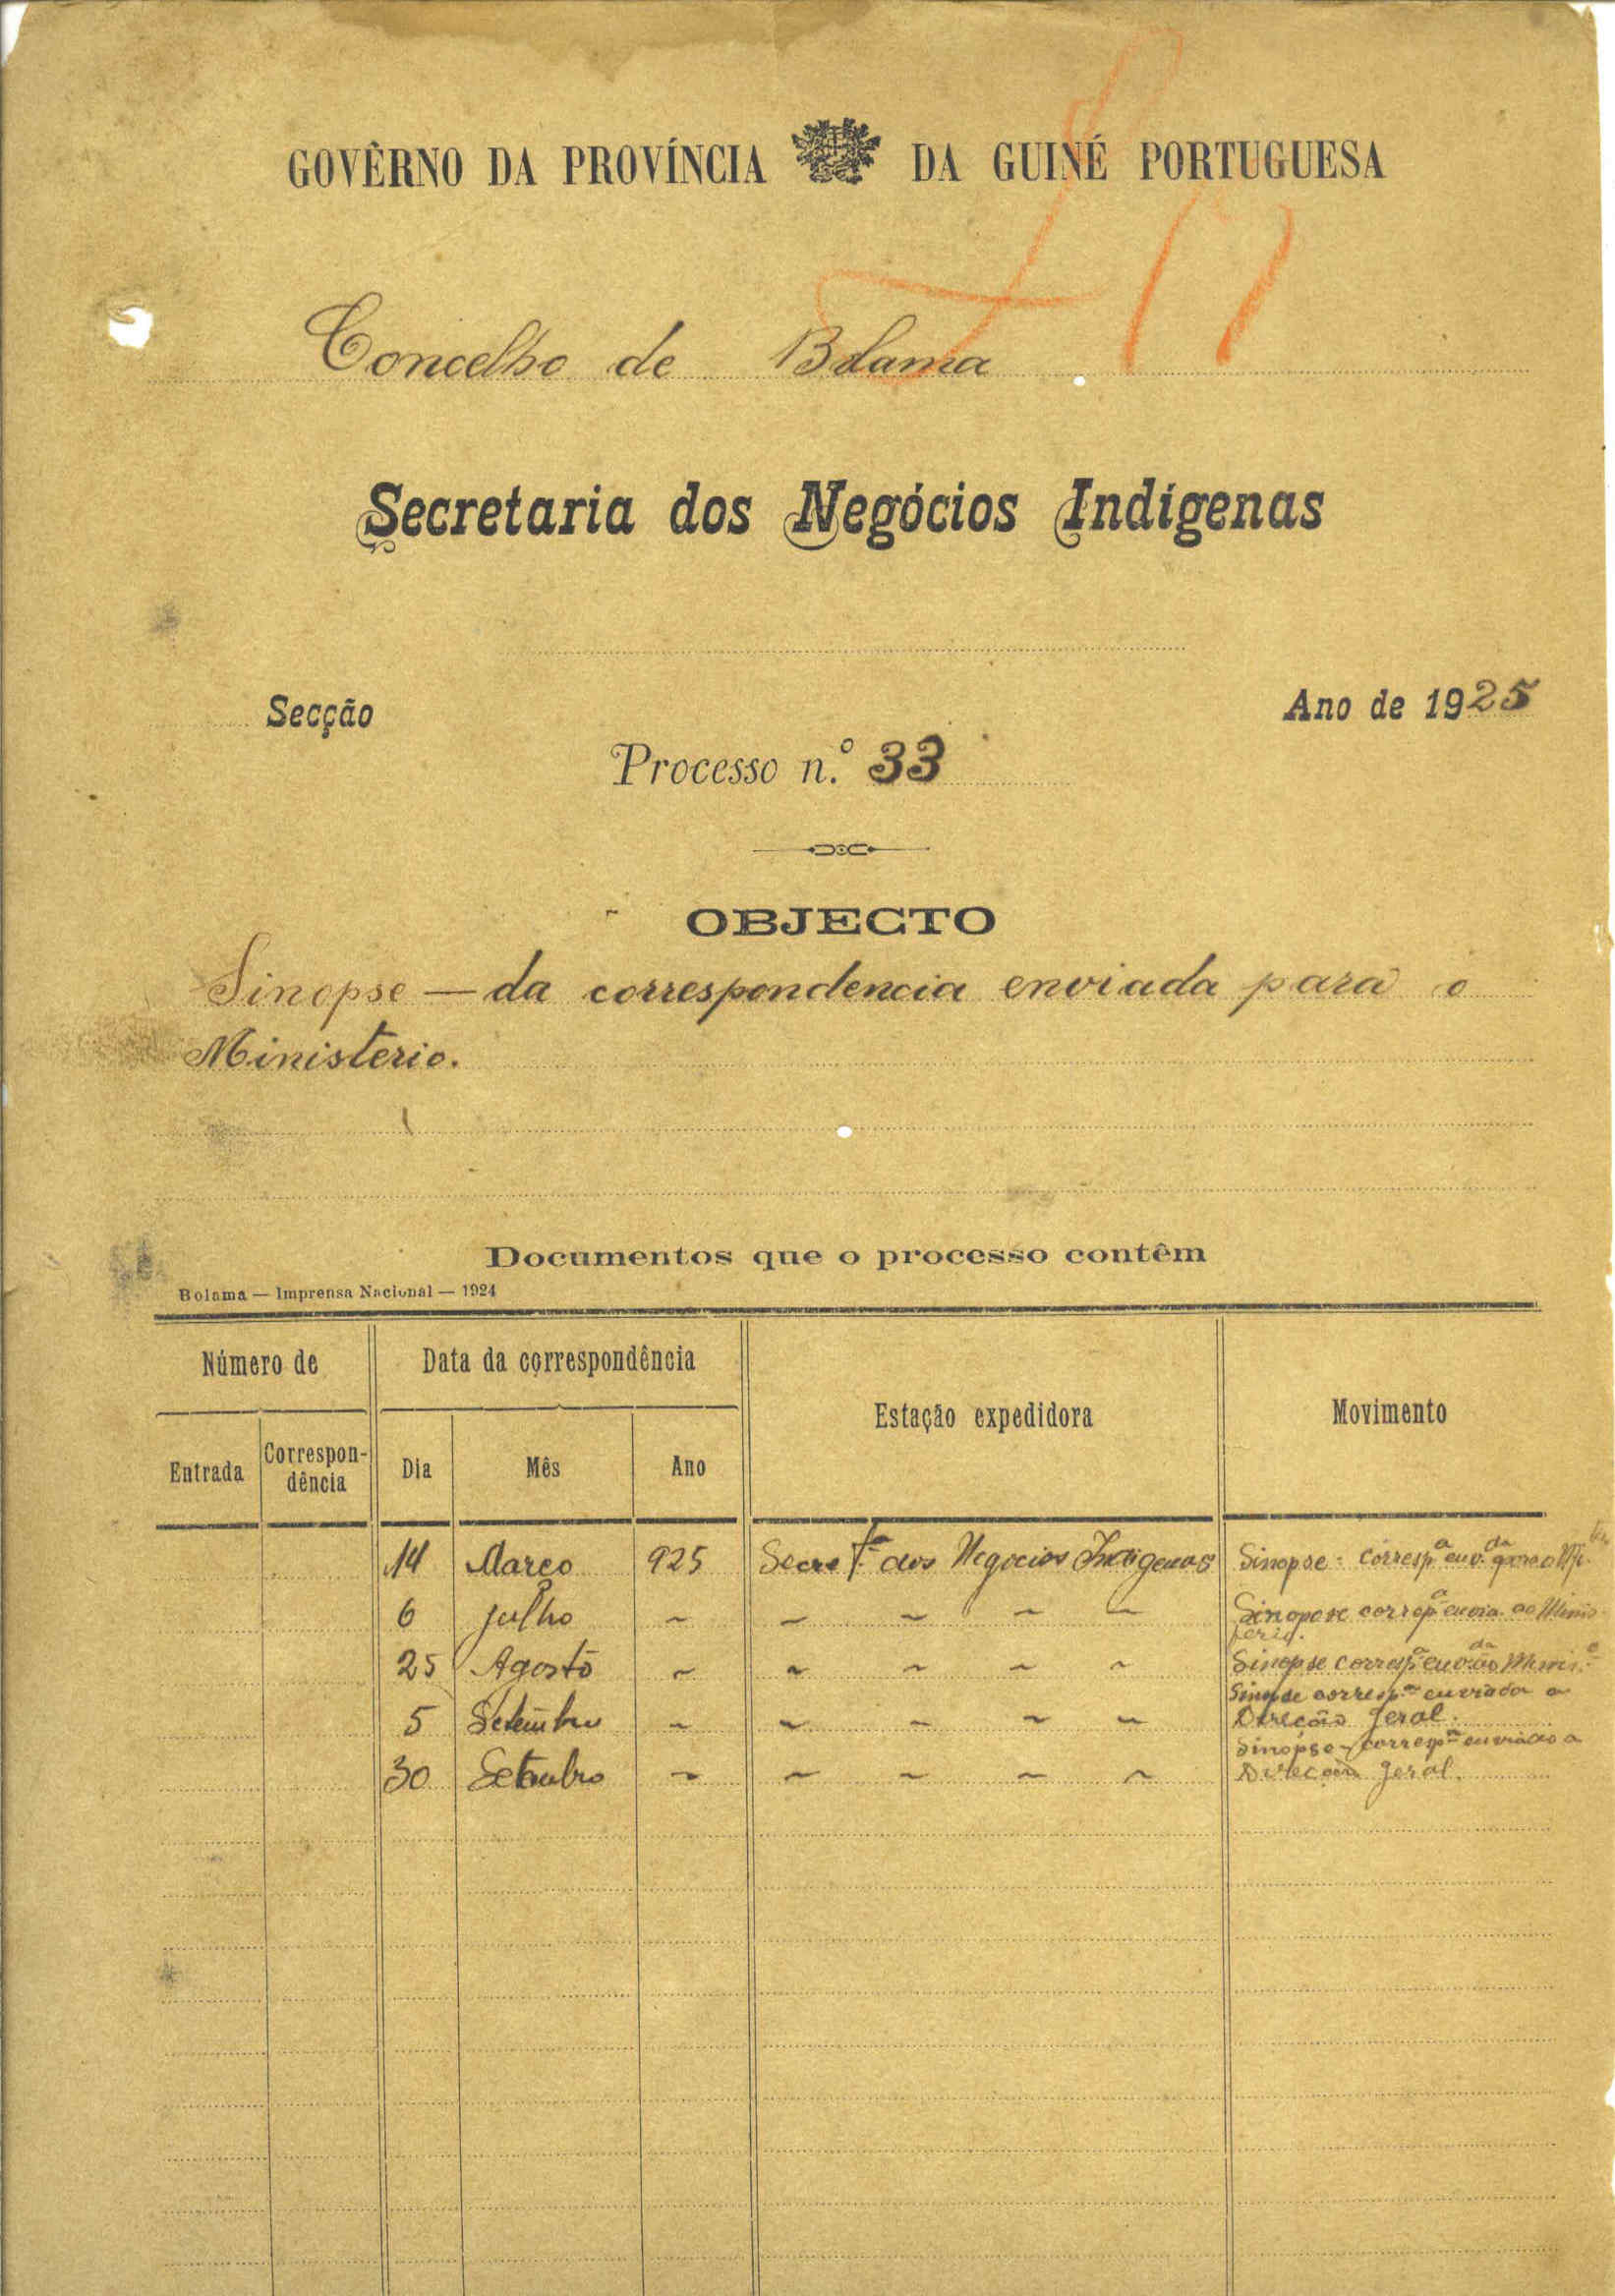 GOVÊRNO DA PROVÍNCIA DA GUINÉ PORTUGUESA
Concelho de Bolama
Secretaria dos Negócios Indígenas
Secção
Ano de 1925
Processo n.º 33
OBJECTO
Sinopse — da correspondencia enviada para o
Ministerio.
Documentos que o processo contêm
Bolama — Imprensa Nacional — 1924
Número de Data da correspondência Estação expedidora Movimento
Entrada Correspon-dência Dia Mês Ano
14 Março 925 Secret.ª dos Negocios Indigenas Sinopse corresp.ª env.da para o
6 Julho ~ ~ ~ ~ ~ Sinopse corresp.ª envia. ao Minis-
terio.
25 Agosto ~ ~ ~ ~ ~ Sinopse corresp.ª env.da ao Minis.º
Sinopse corresp.ª enviada a
5 Setembro ~ ~ ~ ~ ~ Direcão Geral.
Sinopse corresp.ª enviada a
30 Setembro ~ ~ ~ ~ ~ Direcão Geral.